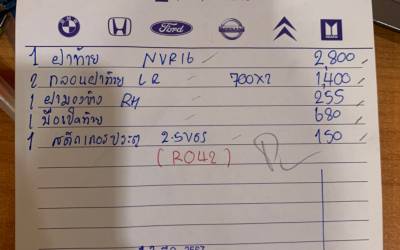 Ford
NISSAN
1 ฝาท้าย NVR16 2,800
2 กลอนฝาท้าย LR 700x2 1,400
1 ฝามองข้าง RH 255
1 มือเปิดท้าย 680
1 สติกเกอร์ประตู 2.5VGS 150
(RO42)